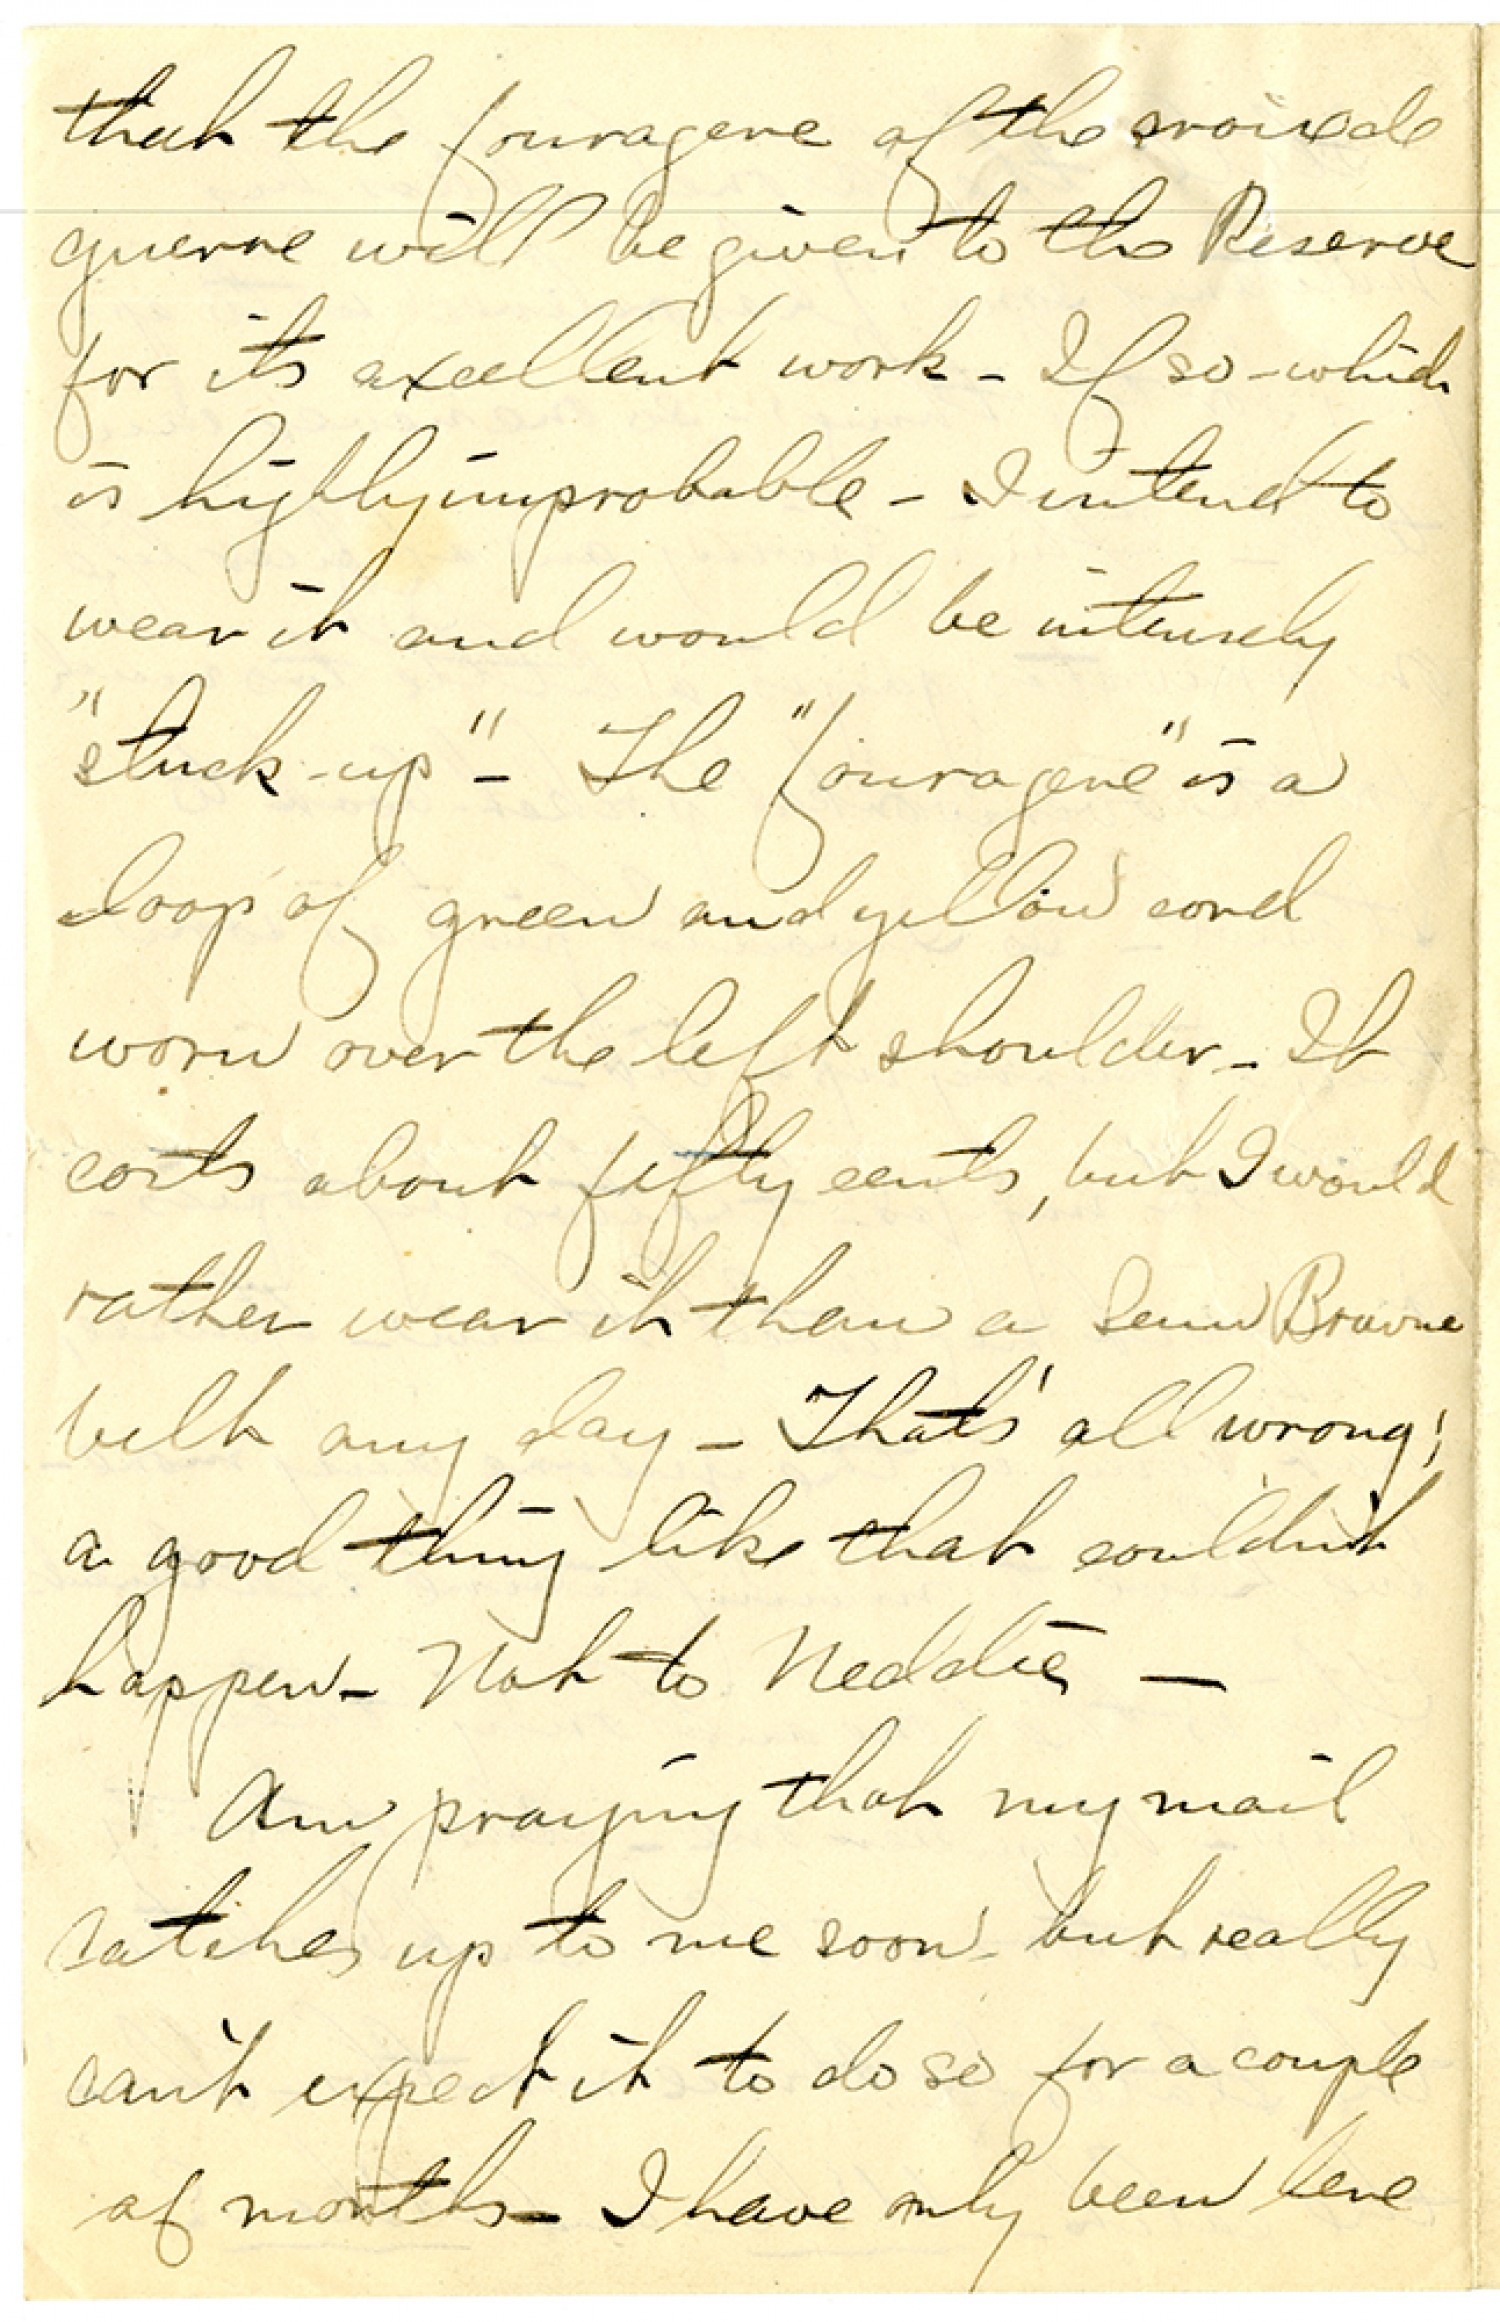 that the fouragere of the croix de
guerre will be given to the Reserve
for its excellent work - If so - which
is highly improbable - I intend to
wear it and would be intensely
"stuck-up" - The "fouragere" is a
loop of green and yellow cord
worn over the left shoulder - It
costs about fifty cents, but I would
rather wear it than a Sam Browne
belt any day - That's all wrong;
a good thing like that couldn't
happen - Not to Neddie -
Am praying that my mail
catches up to me soon - but really
can't expect it to do so for a couple
of months - I have only been here